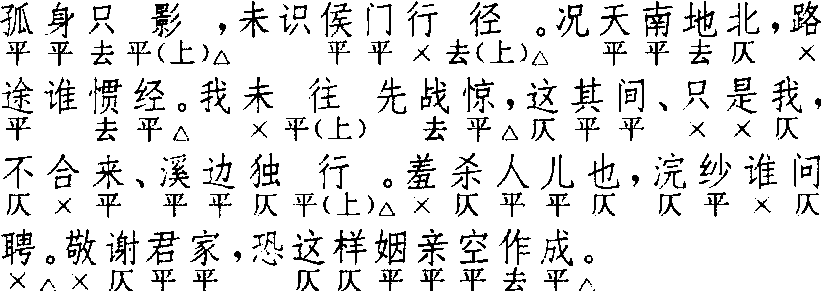 孤身只影，未识侯门行径。况天南地北，路
平平去平(上)△ 平平×去(上)△ 平平去仄 ×
途谁惯经。我未往先战惊，这其间、只是我，
平 去平△ ×平(上) 去平△仄平平 ××仄
不合来、溪边独行。羞杀人儿也，浣纱谁问
仄×平 平平仄平(上)△×仄平平仄 仄平×仄
聘。敬谢君家，恐这样姻亲空作成。
×△×仄平平 仄仄平平平去平△